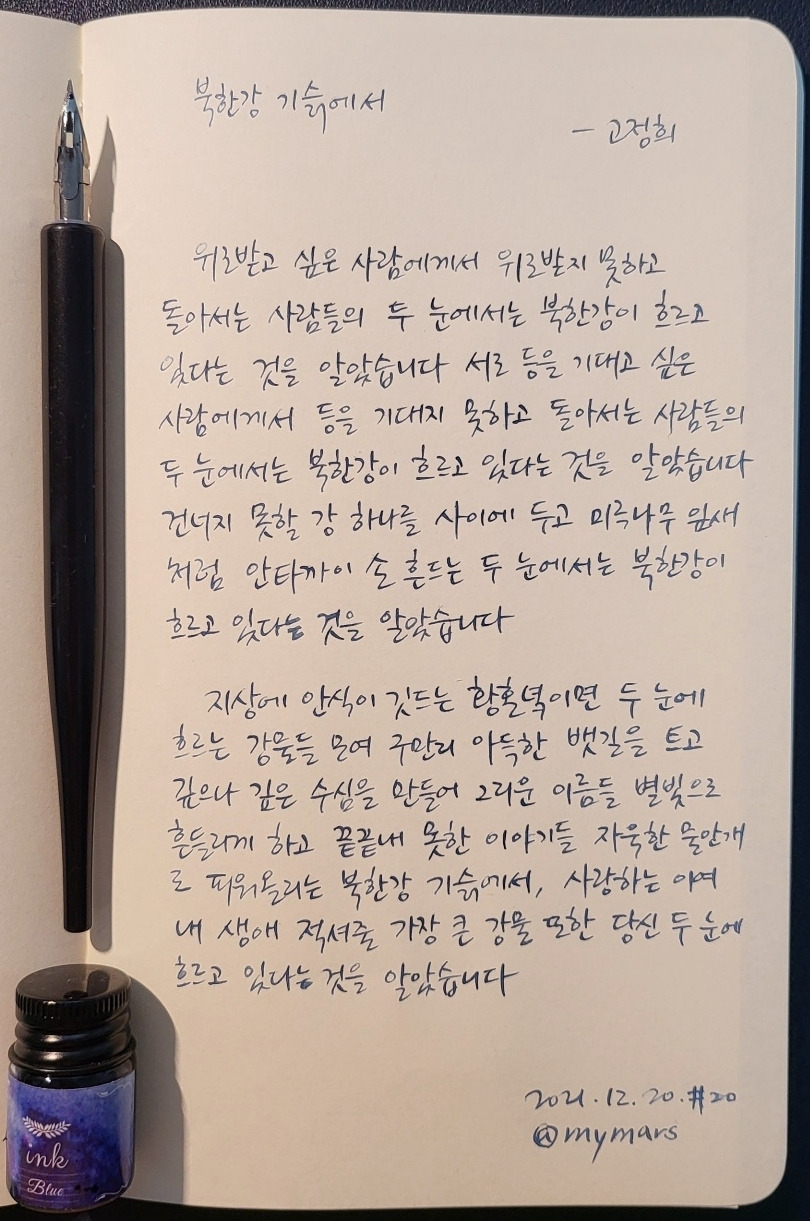 북한강 기슭에서
- 고정희
위로받고 싶은 사람에게서 위로받지 못하고
돌아서는 사람들의 두 눈에서는 북한강이 흐르고
있다는 것을 알았습니다 서로 등을 기대고 싶은
사람에게서 등을 기대지 못하고 돌아서는 사람들의
두 눈에서는 북한강이 흐르고 있다는 것을 알았습니다
건너지 못할 강 하나를 사이에 두고 미루나무 잎새
처럼 안타까이 손 흔드는 두 눈에서는 북한강이
흐르고 있다는 것을 알았습니다
지상에 안식이 깃드는 황혼녘이면 두 눈에
흐르는 강물들 모여 구만리 아득한 뱃길을 트고
깊으나 깊은 수심을 만들어 그리운 이름들 별빛으로
흔들리게 하고 끝끝내 못한 이야기들 자욱한 물안개
로 피워올리는 북한강 기슭에서, 사랑하는 이여
내 생애 적셔줄 가장 큰 강물 또한 당신 두 눈에
흐르고 있다는 것을 알았습니다
2021.12.20.#20
@mymars
ink
Blue